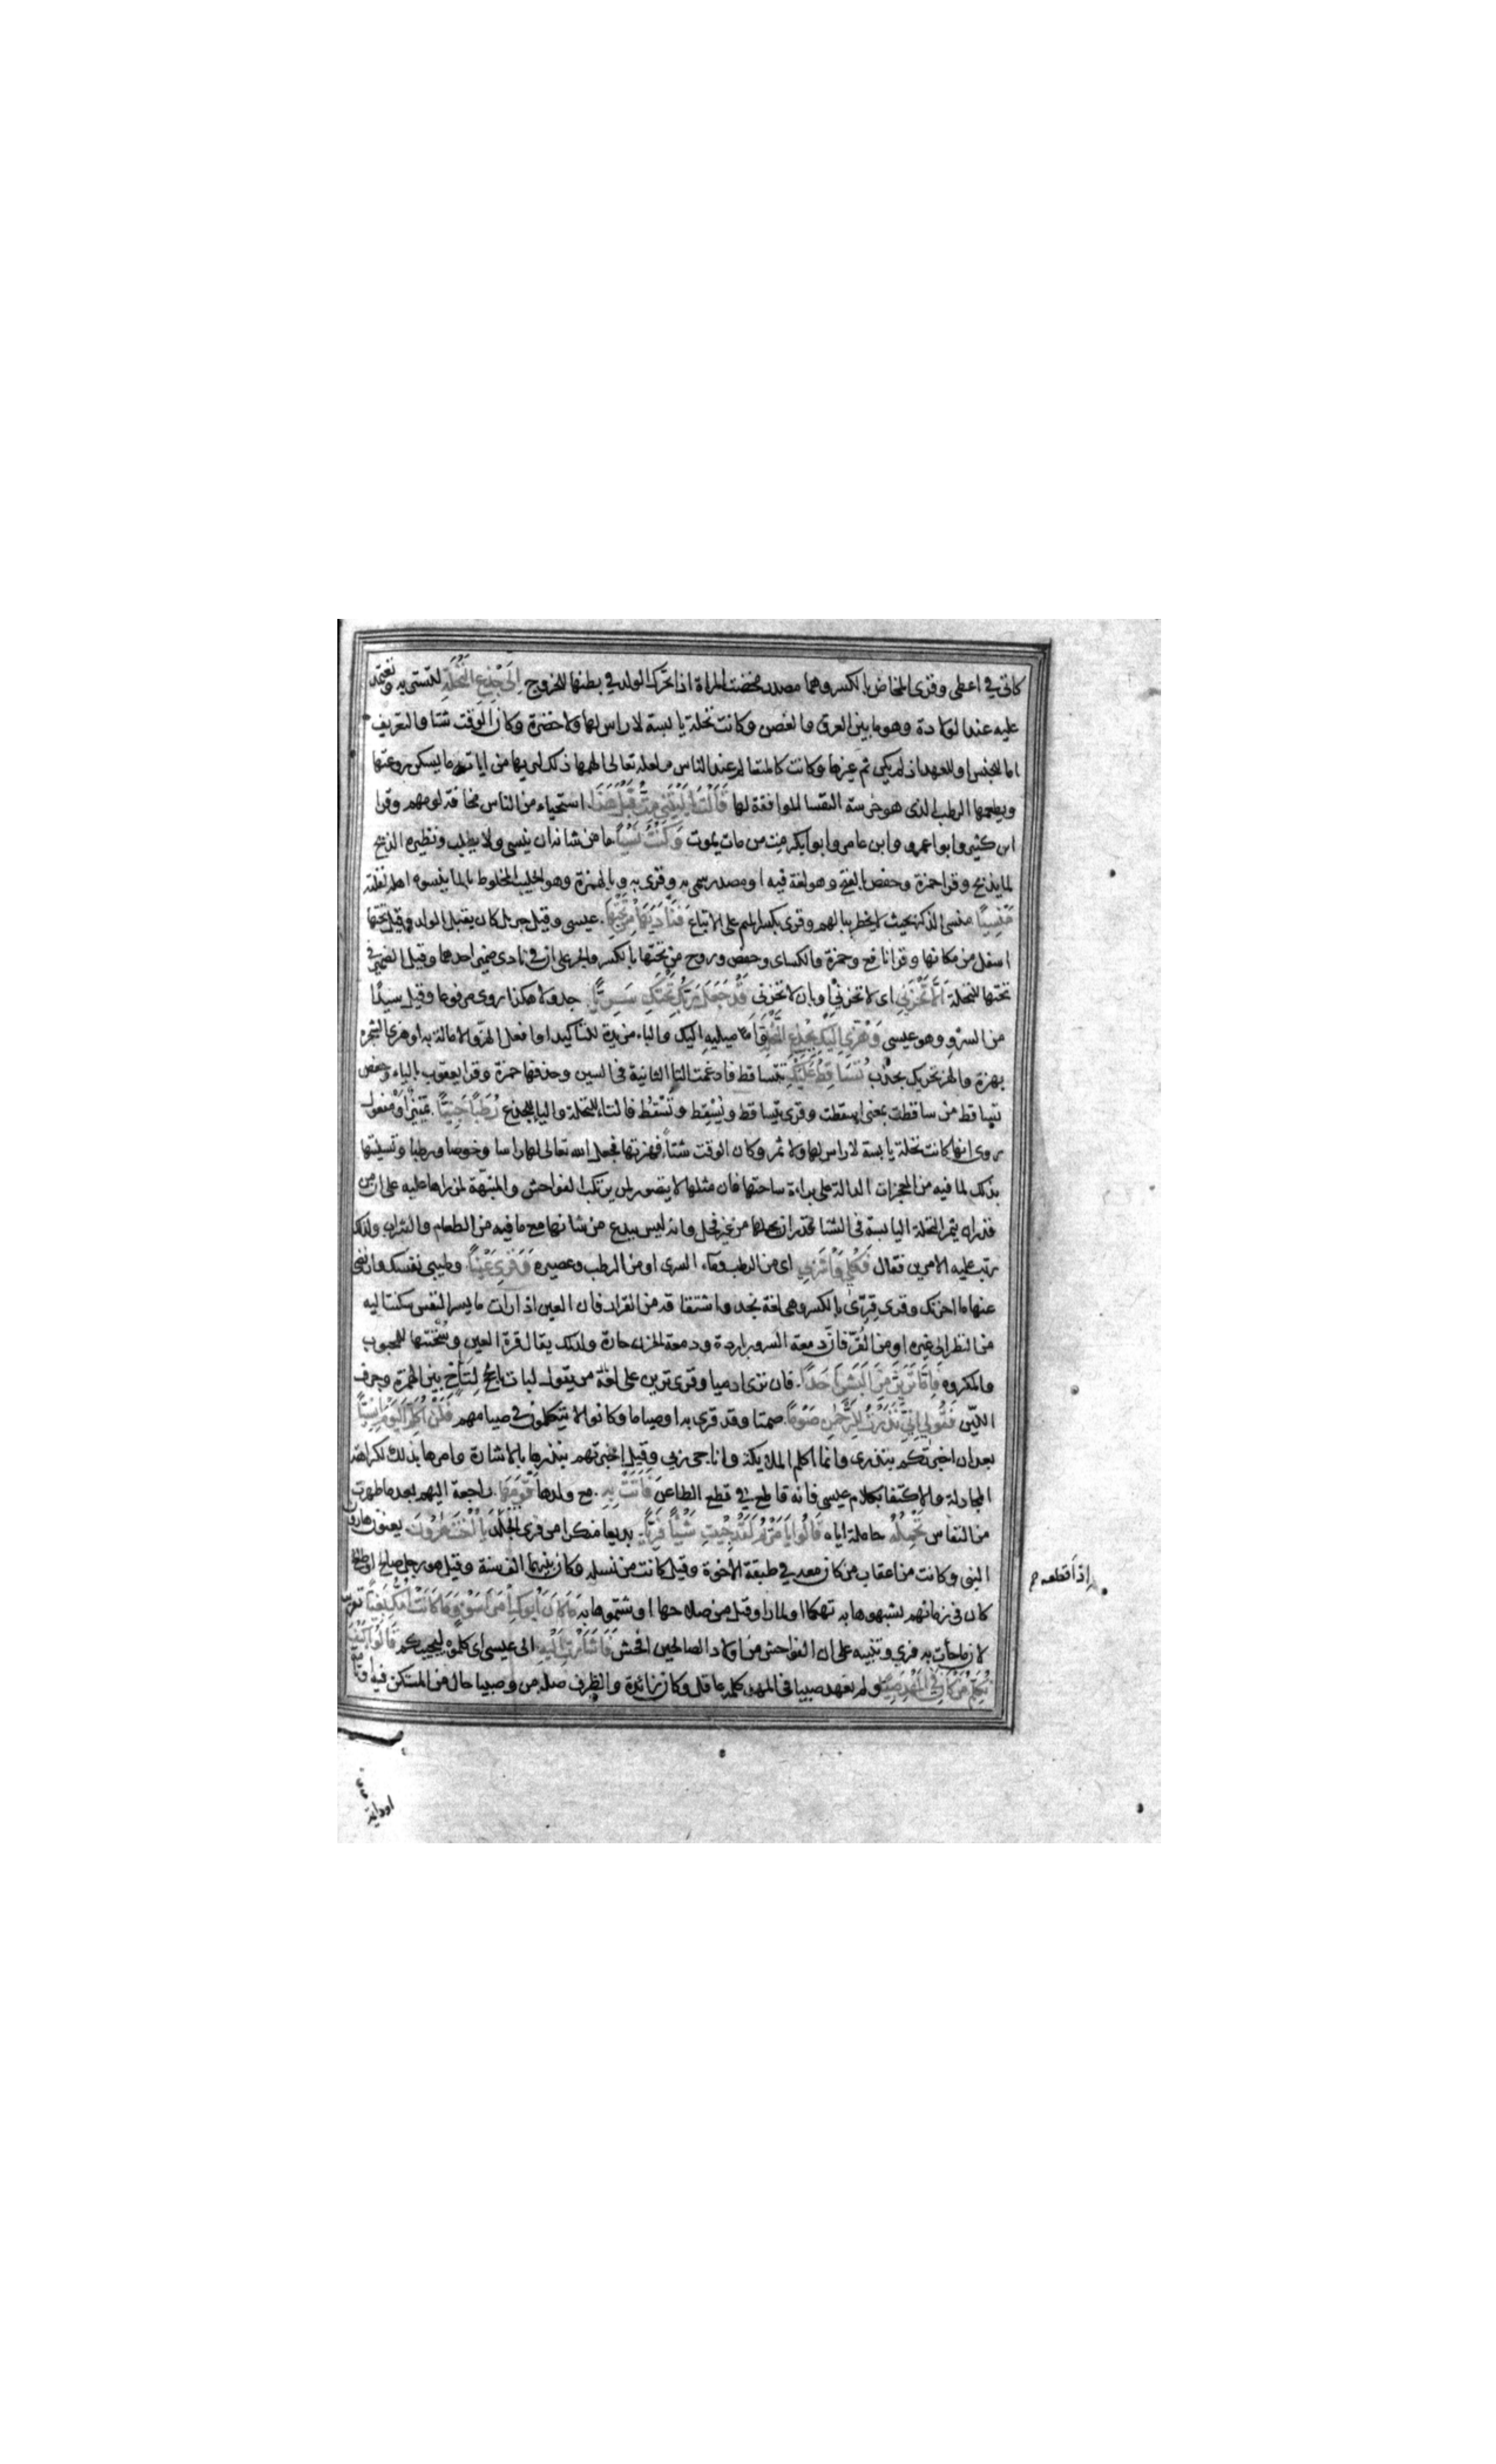 كاتى في اعطى وقرئ المخاض بالكسر وهما مصدر مخضت المراة اذا تحرك الولد في بطنها للخروج إِلَى جِذْعِ النَّخْلَةِ لتستتر به وتعتمد
عليه عند الولادة وهو ما بين العرق والغصن وكانت نخلة يابسة لا راس لها ولا خضرة وكان الوقت شتا والتعريف
اما للجنس او للعهد اذ لم يكن ثم غيرها وكانت كالمتعالم عند الناس ولعله تعالى الهمها ذلك ليريها من اياته ما يسكن روعتها
ويطعمها الرطب الذى هو خرسة النفسا الموافقة لها قَالَتْ يَا لَيْتَنِي مِتُّ قَبْلَ هَذَا استحياء من الناس مخافة لومهم وقرا
ابن كثير وابو عمرو وابن عامر وابو بكر مت من مات يموت وَكُنْتُ نَسْيًا ما من شانه ان ينسى ولا يطلب ونظيره الذبح
لما يذبح وقرا حمزة وحفص بالفتح وهو لغة فيه او مصدر سمى به وقرئ به وبالهمزة وهو الحليب المخلوط بالما ينسوه اهله لقلته
مَنْسِيًّا منسى الذكر بحيث لا يخطر ببالهم وقرئ بكسر الميم على الاتباع فَنَادَيهَا مِنْ تَحْتِهَا عيسى وقيل جبريل كان يقبل الولد وقيل تحتها
اسفل من مكانها وقرا نافع وحمزة والكساى وحفص وروح من تحتها بالكسر والجر على ان في نادى ضمير احدهما وقيل الضمير في
تحتها للنخلة أَلَّا تَحْزَنِي اى لا تحزنى او بان لا تحزنى قَدْ جَعَلَ رَبُّكِ تَحْتَكِ سَرِيًّا جدولا هكذا روى مرفوعا وقيل سيدًا
من السرو وهو عيسى وَهُزِّي إِلَيْكِ بِجِذْعِ النَّخْلَةِ وا ميليه اليك والباء مزيدة للتاكيد او افعلى الهز والامالة به او هزى الثمرة
بهزه والهز تحريك بجذب تُسَاقِطْ عَلَيْكِ تتساقط فادغمت التا الثانية في السين وحذفها حمزة وقرا يعقوب بالياء وحفص
تساقط من ساقطت بمعنى اسقطت وقرى تتساقط ويُسْقِط وتَسْقُط فالتاء للنخلة واليا للجذع رُطَبًا جَنِيًّا تمييز او مفعول
روى انها كانت نخلة يابسة لا راس لها ولا ثمر وكان الوقت شتاء فهزتها فجعل الله تعالى لها راسا وخوصا ورطبا وتسليتها
بذلك لما فيه من المعجزات الدالة على براءة ساحتها فان مثلها لا يتصور لمن يرتكب الفواحش والمنبهة لمن راها عليه على ان من
قدر ان يثمر النخلة اليابسة في الشتا قدر ان يحبلها من غير فحل وانه ليس ببدع من شانها مع ما فيه من الطعام والشراب ولذلك
رتب عليه الامرين فقال فَكُلِي وَاشْرَبِي اى من الرطب وماء السرى او من الرطب وعصيره وَقَرِّي عَيْنًا وطيبى نفسك وارفضى
عنها ما احزنك وقرى قِرِّى بالكسر وهى لغة نجد واشتقاقه من القرار فان العين اذا رات ما يسر النفس سكنت اليه
من النظر الى غيره او من القُرّ فان دمعة السرور باردة ودمعة الحزن حارة ولذلك يقال قرة العين وسُخْنتها للمحبوب
والمكروه فَإِمَّا تَرَيِنَّ مِنَ الْبَشَرِ أَحَدًا فان ترى ادميا وقرى ترين على لغة من يقول لبات بالحج لتاخ بين الهمزة وحرف
اللين فَقُولِي إِنِّي نَذَرْتُ لِلرَّحْمٰنِ صَوْمًا صمتا وقد قرى به او صياما وكانوا لا يتكلمون في صيامهم فَلَنْ أُكَلِّمَ الْيَوْمَ إِنْسِيًّا
بعد ان اخبرتكم بنذرى وانما اكلم الملايكة واناجى ربي وقيل اخبرتهم بنذرها بالاشارة وامرها بذلك لكراهة
المجادلة والاكتفا بكلام عيسى فانه قاطع في قطع الطاعن فَأَتَتْ بِهِ مع ولدها قَوْمَهَا راجعة اليهم بعد ما طهرت
من النفاس تَحْمِلُهُ حاملة اياه قَالُوا يَا مَرْيَمُ لَقَدْ جِئْتِ شَيْئًا فَرِيًّا بديعا منكرا من فرى الجلد يَا أُخْتَ هَرُونَ يعنون هارون
النبى وكانت من اعقاب من كان معه في طبقة الاخوة وقيل كانت من نسله وكان بينهما الف سنة وقيل هو رجل صالح او طالح
كان في زمانهم شبهوها به تهكما او لما راوا قبل من صلاحها او شتموها به مَا كَانَ أَبُوكِ امْرَأَ سَوْءٍ وَمَا كَانَتْ أُمُّكِ بَغِيًّا تقرير
لان ما جات به فرى وتنبيه على ان الفواحش من اولاد الصالحين افحش فَأَشَارَتْ إِلَيْهِ الى عيسى اى كلموه ليجيبكم قَالُوا كَيْفَ
نُكَلِّمُ مَنْ كَانَ فِي الْمَهْدِ صَبِيًّا ولم نعهد صبيا في المهد كلمه عاقل وكان زائدة والظرف صلة من وصبيا حال من المستكن فيه
إذا قطعه
او دايمة